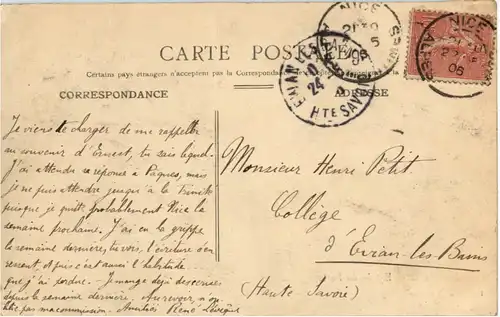 CARTE POSTALE
Certains pays étrangers n'acceptent pas la Correspondance
CORRESPONDANCE
ADRESSE
NICE
NICE
06
EVIAN-LES-BAINS
24
HTE SAVOIE
Je viens te charger de me rappeler
au souvenir d'Ernest, tu sais lequel.
J'ai attendu sa réponse à Pâques, mais
je ne puis attendre jusqu'à la trinité
puisque je quitte probablement Nice la
semaine prochaine. J'ai eu la grippe
la semaine dernière, tu vois l'écriture s'en
ressent. Et puis c'est aussi l'habitude
que j'ai perdue. Je mange déjà des cerises
depuis la semaine dernière. Au revoir, n'ou-
blie pas ma commission. Amitiés René Lévêque
Monsieur Henri Petit.
Collège
d'Evian-les-Bains
(Haute Savoie)